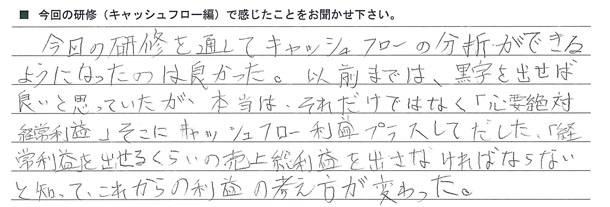 ■ 今回の研修（キャッシュフロー編）で感じたことをお聞かせ下さい。
今日の研修を通してキャッシュフローの分析ができる
ようになったのは良かった。以前までは、黒字を出せば
良いと思っていたが、本当は、それだけではなく「必要絶対
経常利益」そこにキャッシュフロー利益プラスしてだした、「経
常利益を出せるくらいの売上総利益を出さなければならない
と知って、これからの利益の考え方が変わった。